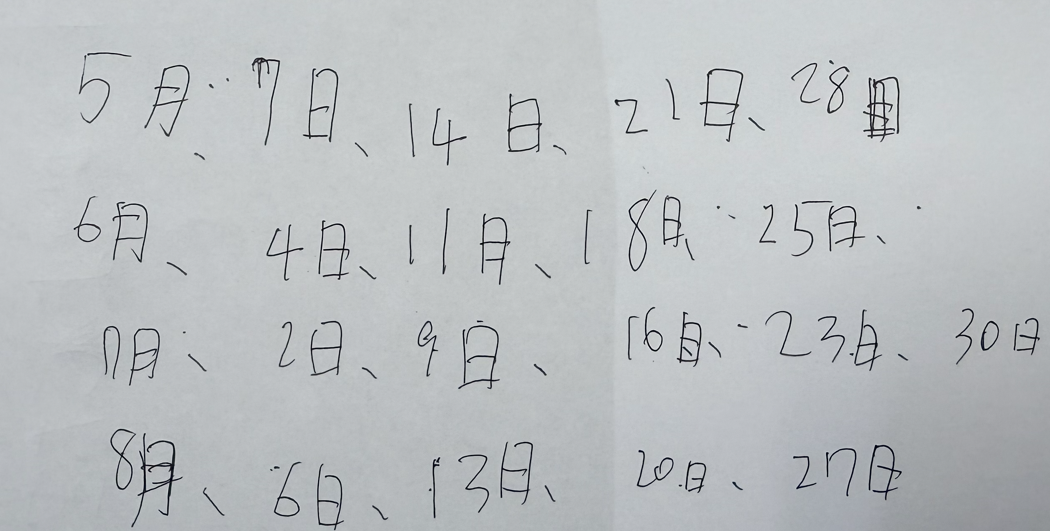 5月、7日、14日、21日、28日
6月、4日、11日、18日、25日、
7月、2日、9日、16日、23日、30日
8月、6日、13日、20日、27日